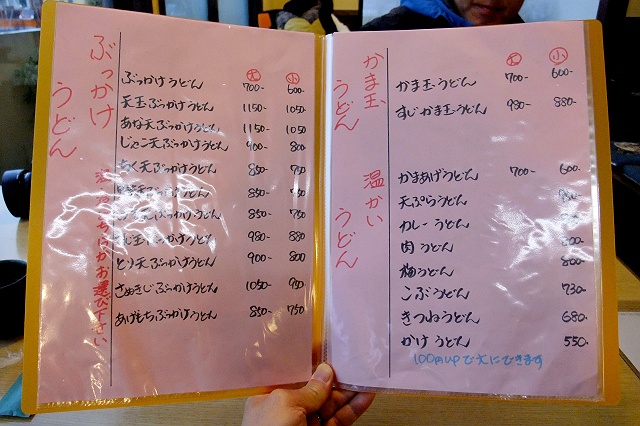 ぶっかけ うどん
大 小
ぶっかけうどん 700- 600-
天玉ぶっかけうどん 1150- 1050
あな天ぶっかけうどん 1150- 1050
じゃこ天ぶっかけうどん 900- 800
ちく天ぶっかけうどん 850- 750
天ぶっかけうどん 850- 750
天ぶっかけうどん 850- 750
玉ぶっかけうどん 980- 880
とり天ぶっかけうどん 900- 800
さぬきじぶっかけうどん 1050 950
あげもちぶっかけうどん 850- 750
どちらかお選び下さい
かま玉 うどん
大 小
かま玉うどん 700- 600-
すじかま玉うどん 980- 880-
温かい うどん
かまあげうどん 700- 600-
天ぷらうどん
カレーうどん
肉うどん
うどん 800-
こぶうどん 730-
きつねうどん 680-
かけうどん 550-
100円upで大にできます